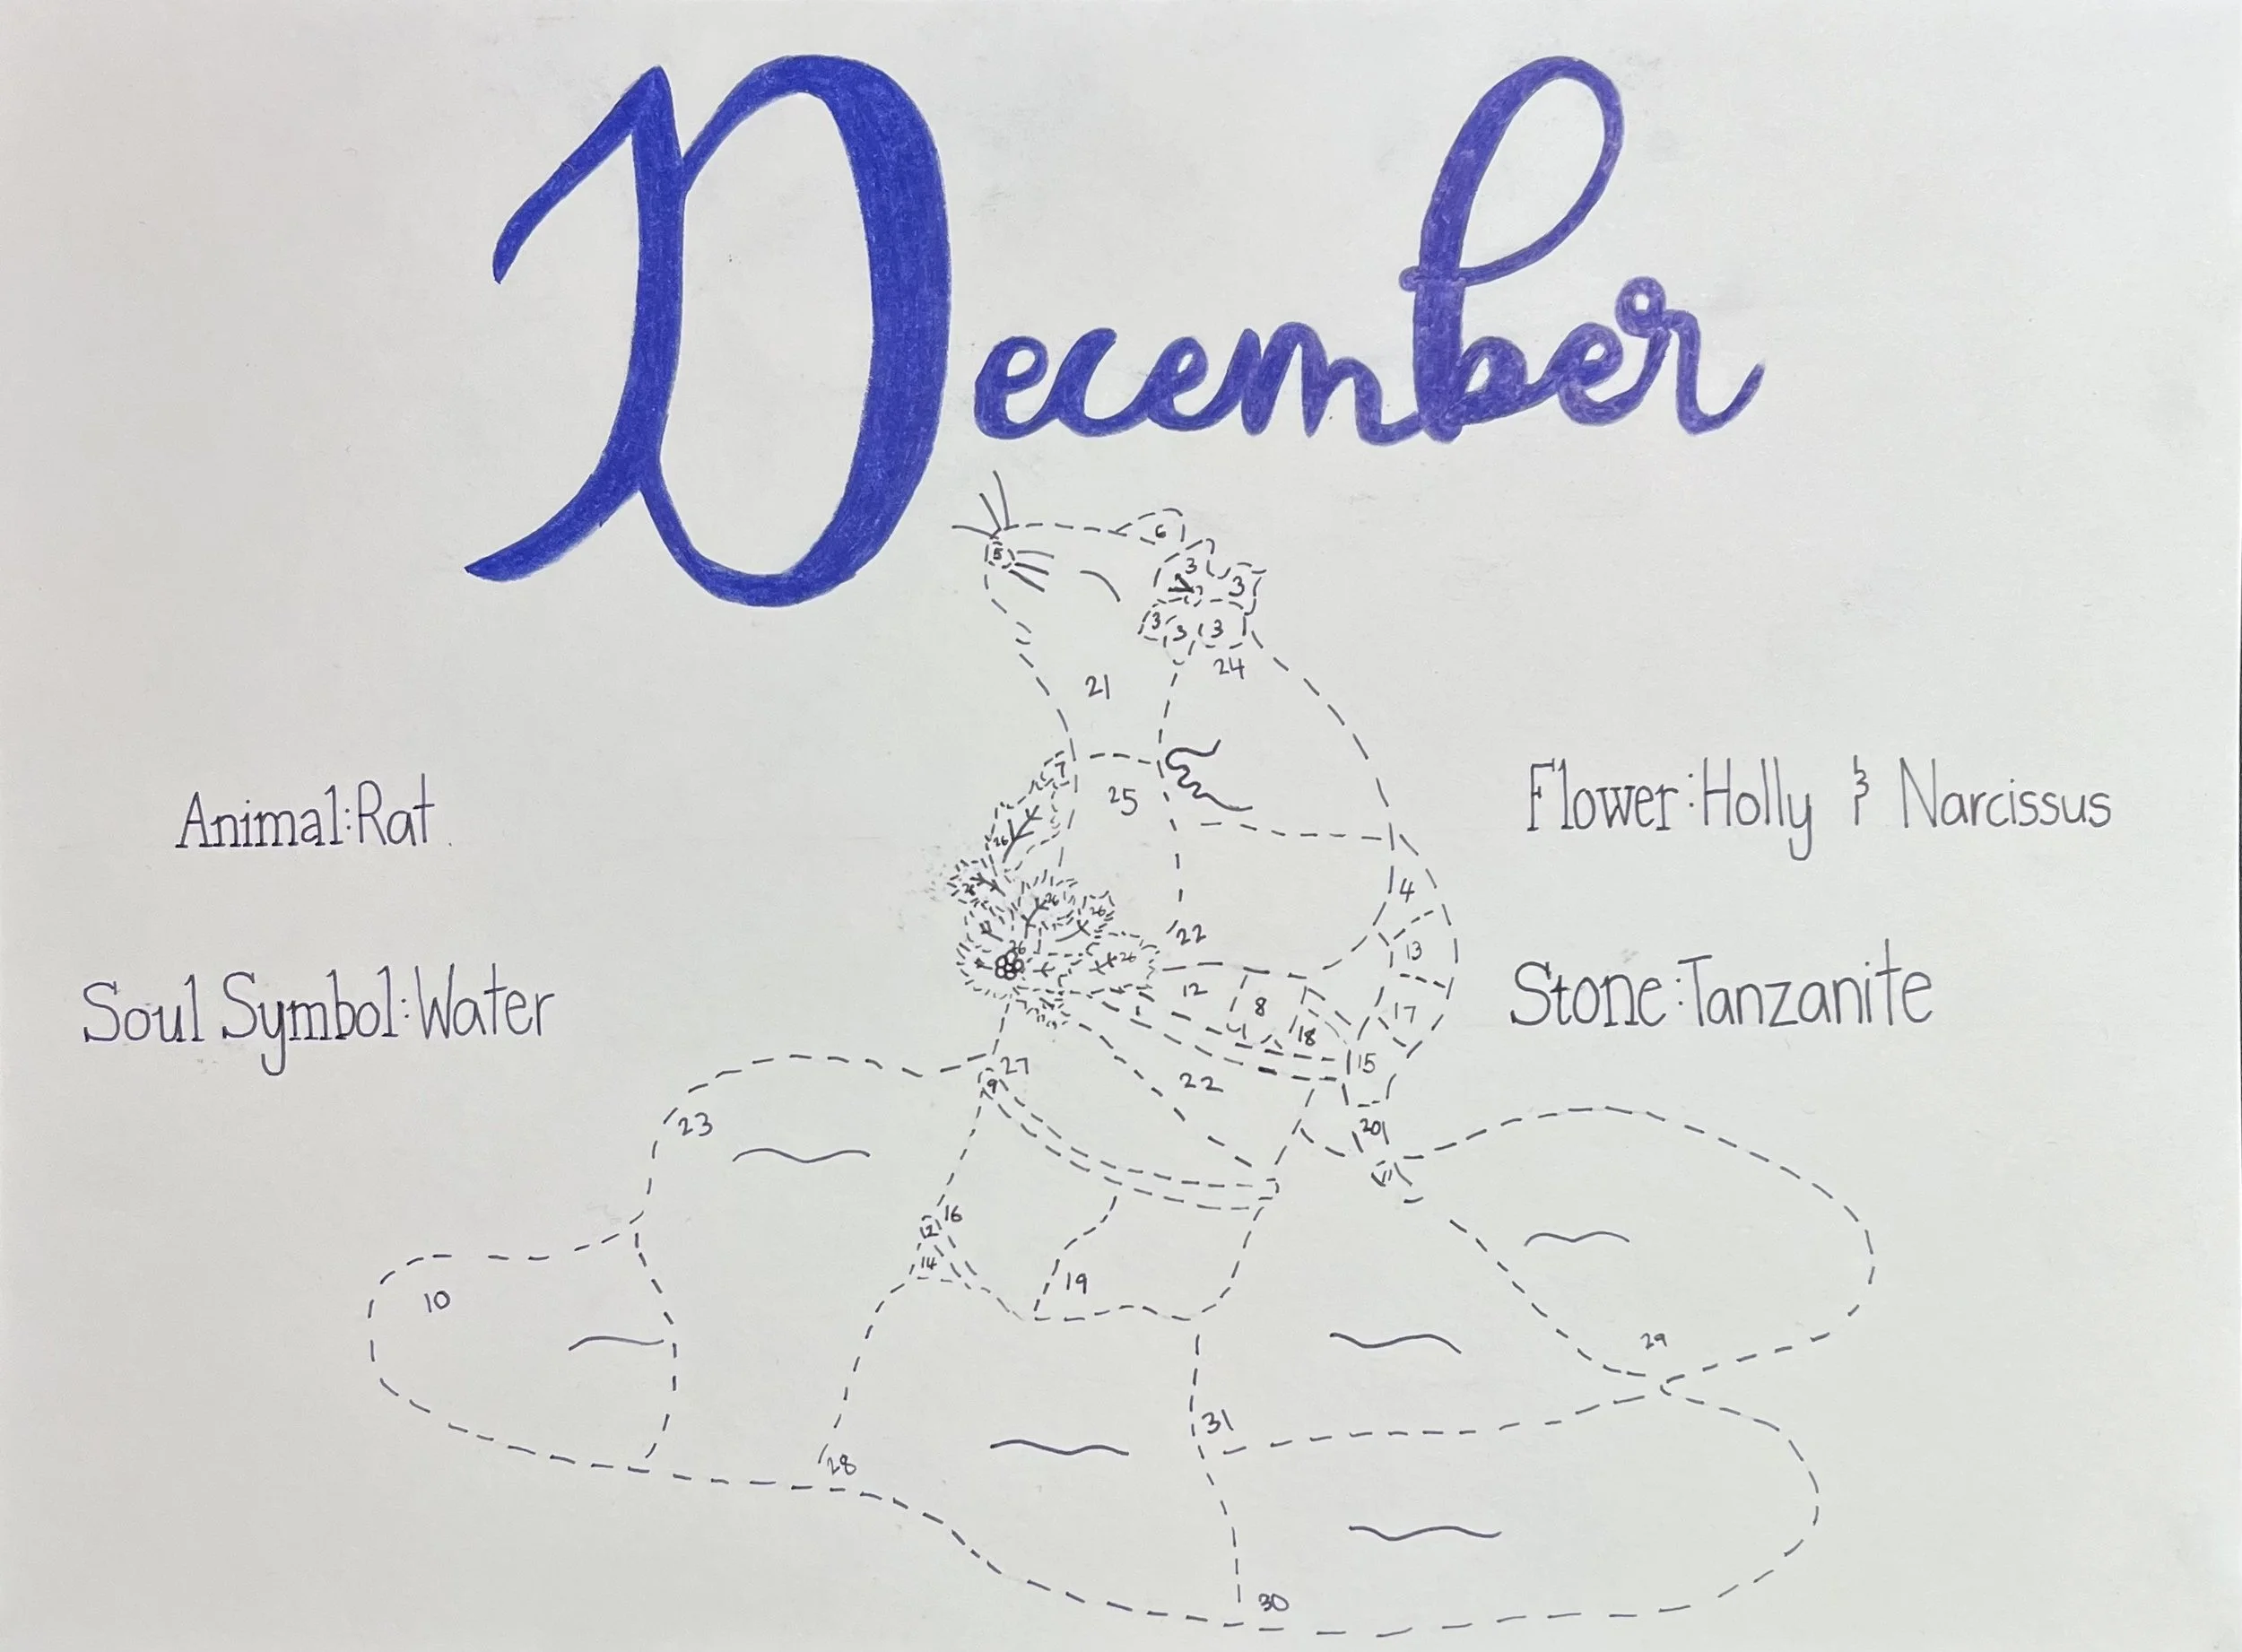 December
5
6
3
3
3 3 3
24
21
7
25
26
4
26
26
22
13
26
26
12
8
17
18
15
27
9
22
23
20
16
14
19
10
29
31
28
30
Animal:Rat.
Flower:Holly & Narcissus
Soul Symbol:Water
Stone:Tanzanite